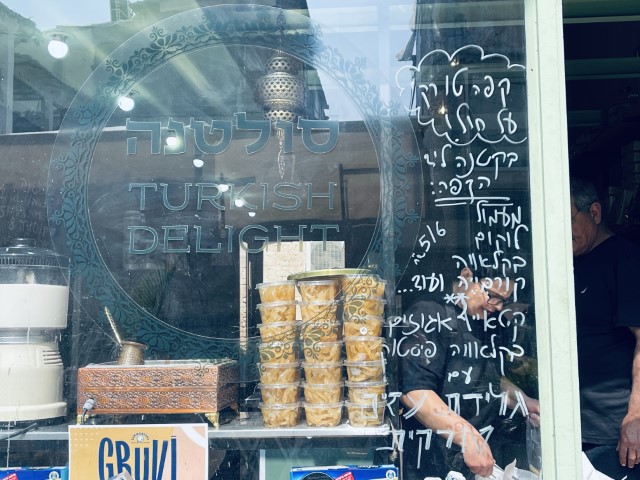 סולטנה
TURKISH
DELIGHT
קפה טורקי
על חול
בקטנה ליד
הקפה:
מעמול
לוקום
בקלאווה
קורפייה ועוד...
קטאייף אגוזים
בקלאווה פיסטוק
עם
גלידת
GRUKI